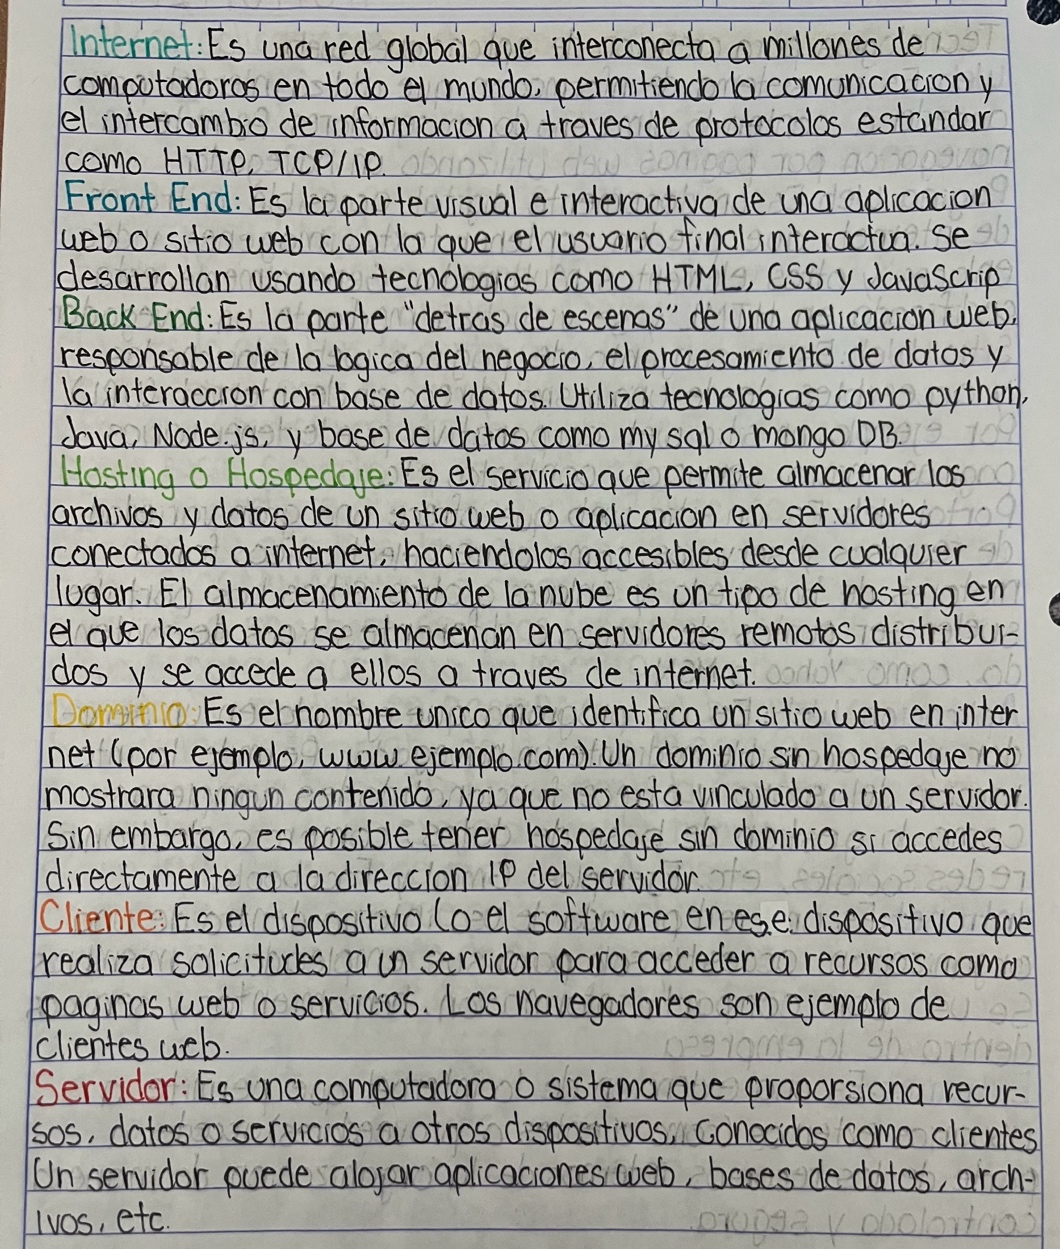 Internet: Es una red global que interconecta a millones de
computadoras en todo el mundo, permitiendo la comunicacion y
el intercambio de informacion a traves de protocolos estandar
como HTTP, TCP/IP.
Front End: Es la parte visual e interactiva de una aplicacion
web o sitio web con la que el usuario final interactua. Se
desarrollan usando tecnologias como HTML, CSS y JavaScrip
Back End: Es la parte "detras de escenas" de una aplicacion web,
responsable de la logica del negocio, el procesamiento de datos y
la interaccion con base de datos. Utiliza tecnologias como python,
Java, Node.js, y base de datos como my sql o mongo DB.
Hosting o Hospedaje: Es el servicio que permite almacenar los
archivos y datos de un sitio web o aplicacion en servidores
conectados a internet, haciendolos accesibles desde cualquier
lugar. El almacenamiento de la nube es un tipo de hosting en
el que los datos se almacenan en servidores remotos distribui-
dos y se accede a ellos a traves de internet.
Dominio: Es el nombre unico que identifica un sitio web en inter
net (por ejemplo, www.ejemplo.com). Un dominio sin hospedaje no
mostrara ningun contenido, ya que no esta vinculado a un servidor.
Sin embargo, es posible tener hospedaje sin dominio si accedes
directamente a la direccion IP del servidor.
Cliente: Es el dispositivo (o el software en ese dispositivo que
realiza solicitudes a un servidor para acceder a recursos como
paginas web o servicios. Los navegadores son ejemplo de
clientes web.
Servidor: Es una computadora o sistema que proporsiona recur-
sos, datos o servicios a otros dispositivos, conocidos como clientes
Un servidor puede alojar aplicaciones web, bases de datos, arch-
ivos, etc.